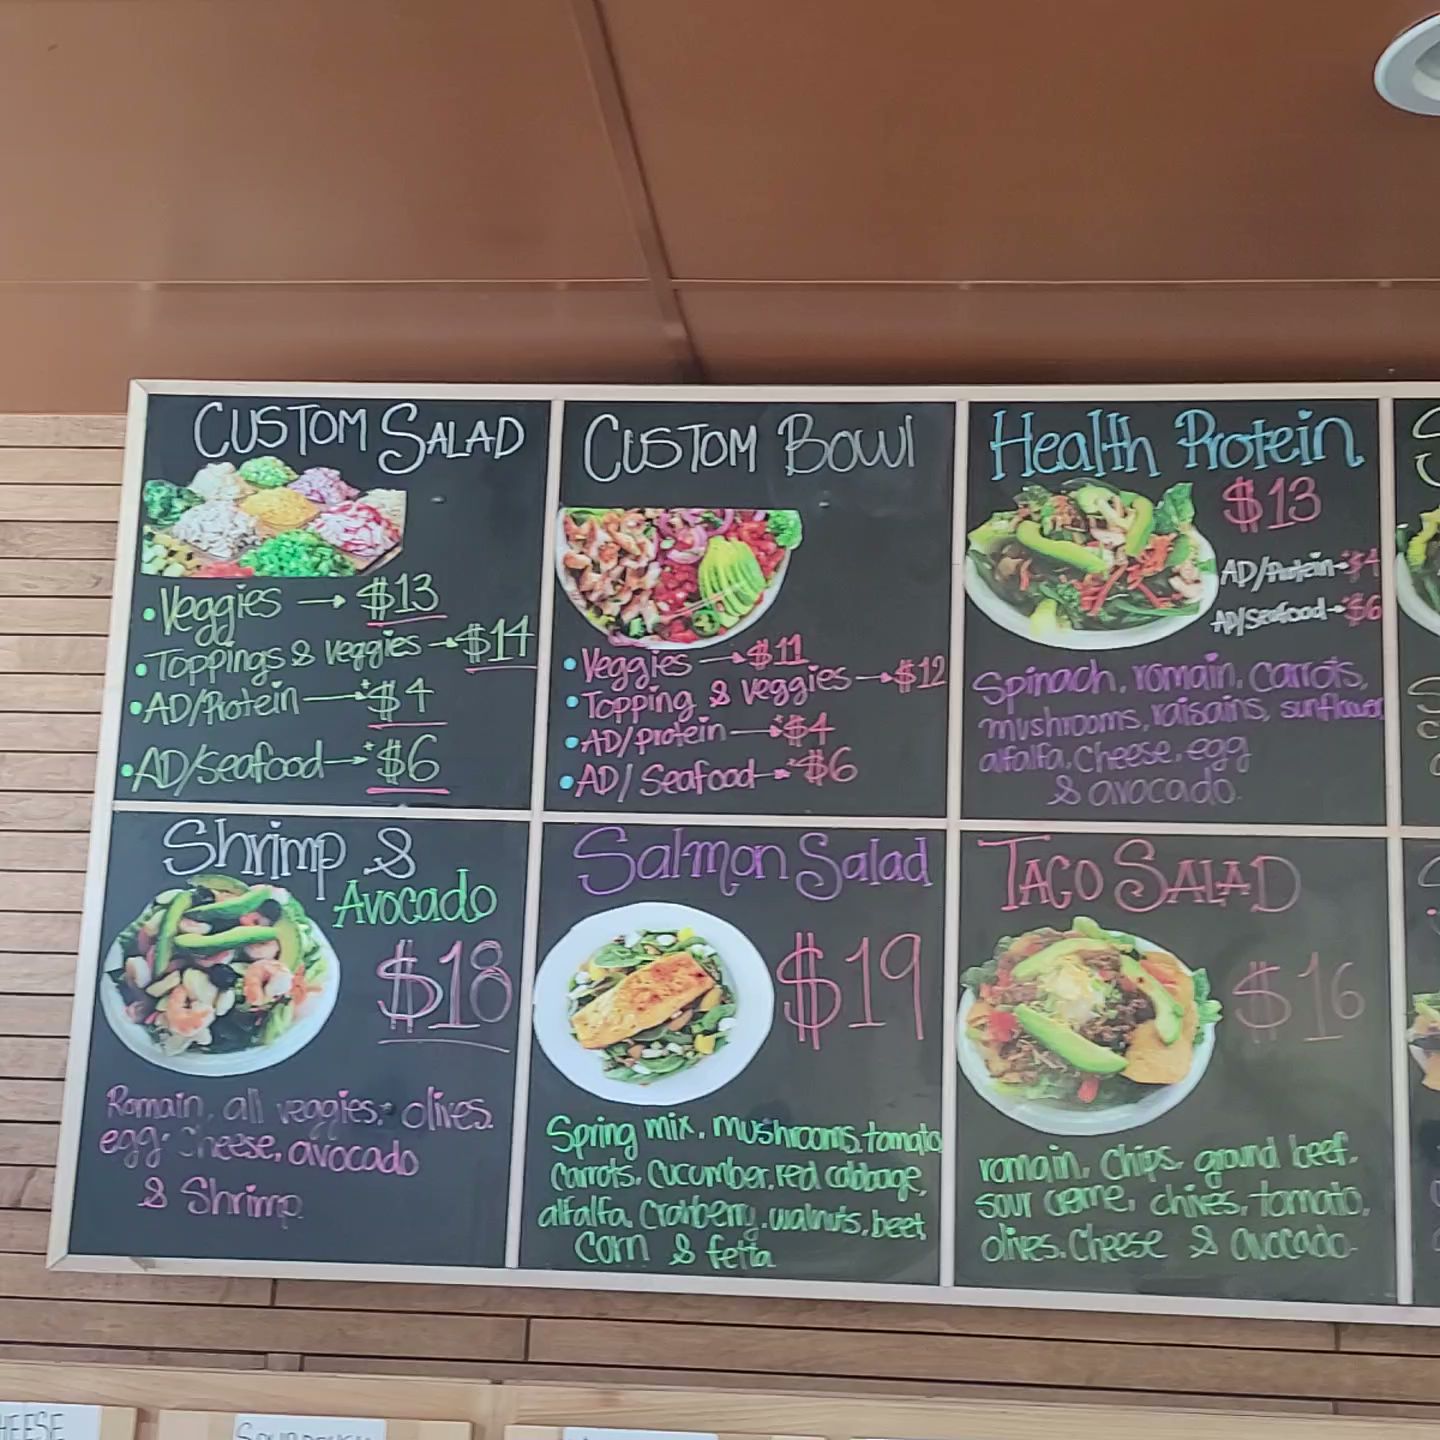 CUSTOM SALAD
• Veggies → $13
• Toppings & veggies → $14
• AD/Protein → $4
• AD/seafood → $6
CUSTOM BOWl
• Veggies → $11
• Topping & veggies → $12
• AD/protein → $4
• AD/ Seafood → $6
Health Protein
$13
AD/Protein → $4
AD/Seafood → $6
Spinach, romain, carrots,
mushrooms, raisains, sunflower
alfalfa, cheese, egg
& avocado.
Shrimp &
Avocado
$18
Romain, all veggies, olives.
egg, cheese, avocado
& Shrimp
Salmon Salad
$19
Spring mix, mushrooms, tomato
carrots, cucumber, red cabbage,
alfalfa, cranberry, walnuts, beet
corn & fetta
TACO SALAD
$16
romain, chips, ground beef,
sour creme, chives, tomato,
olives, cheese & avocado